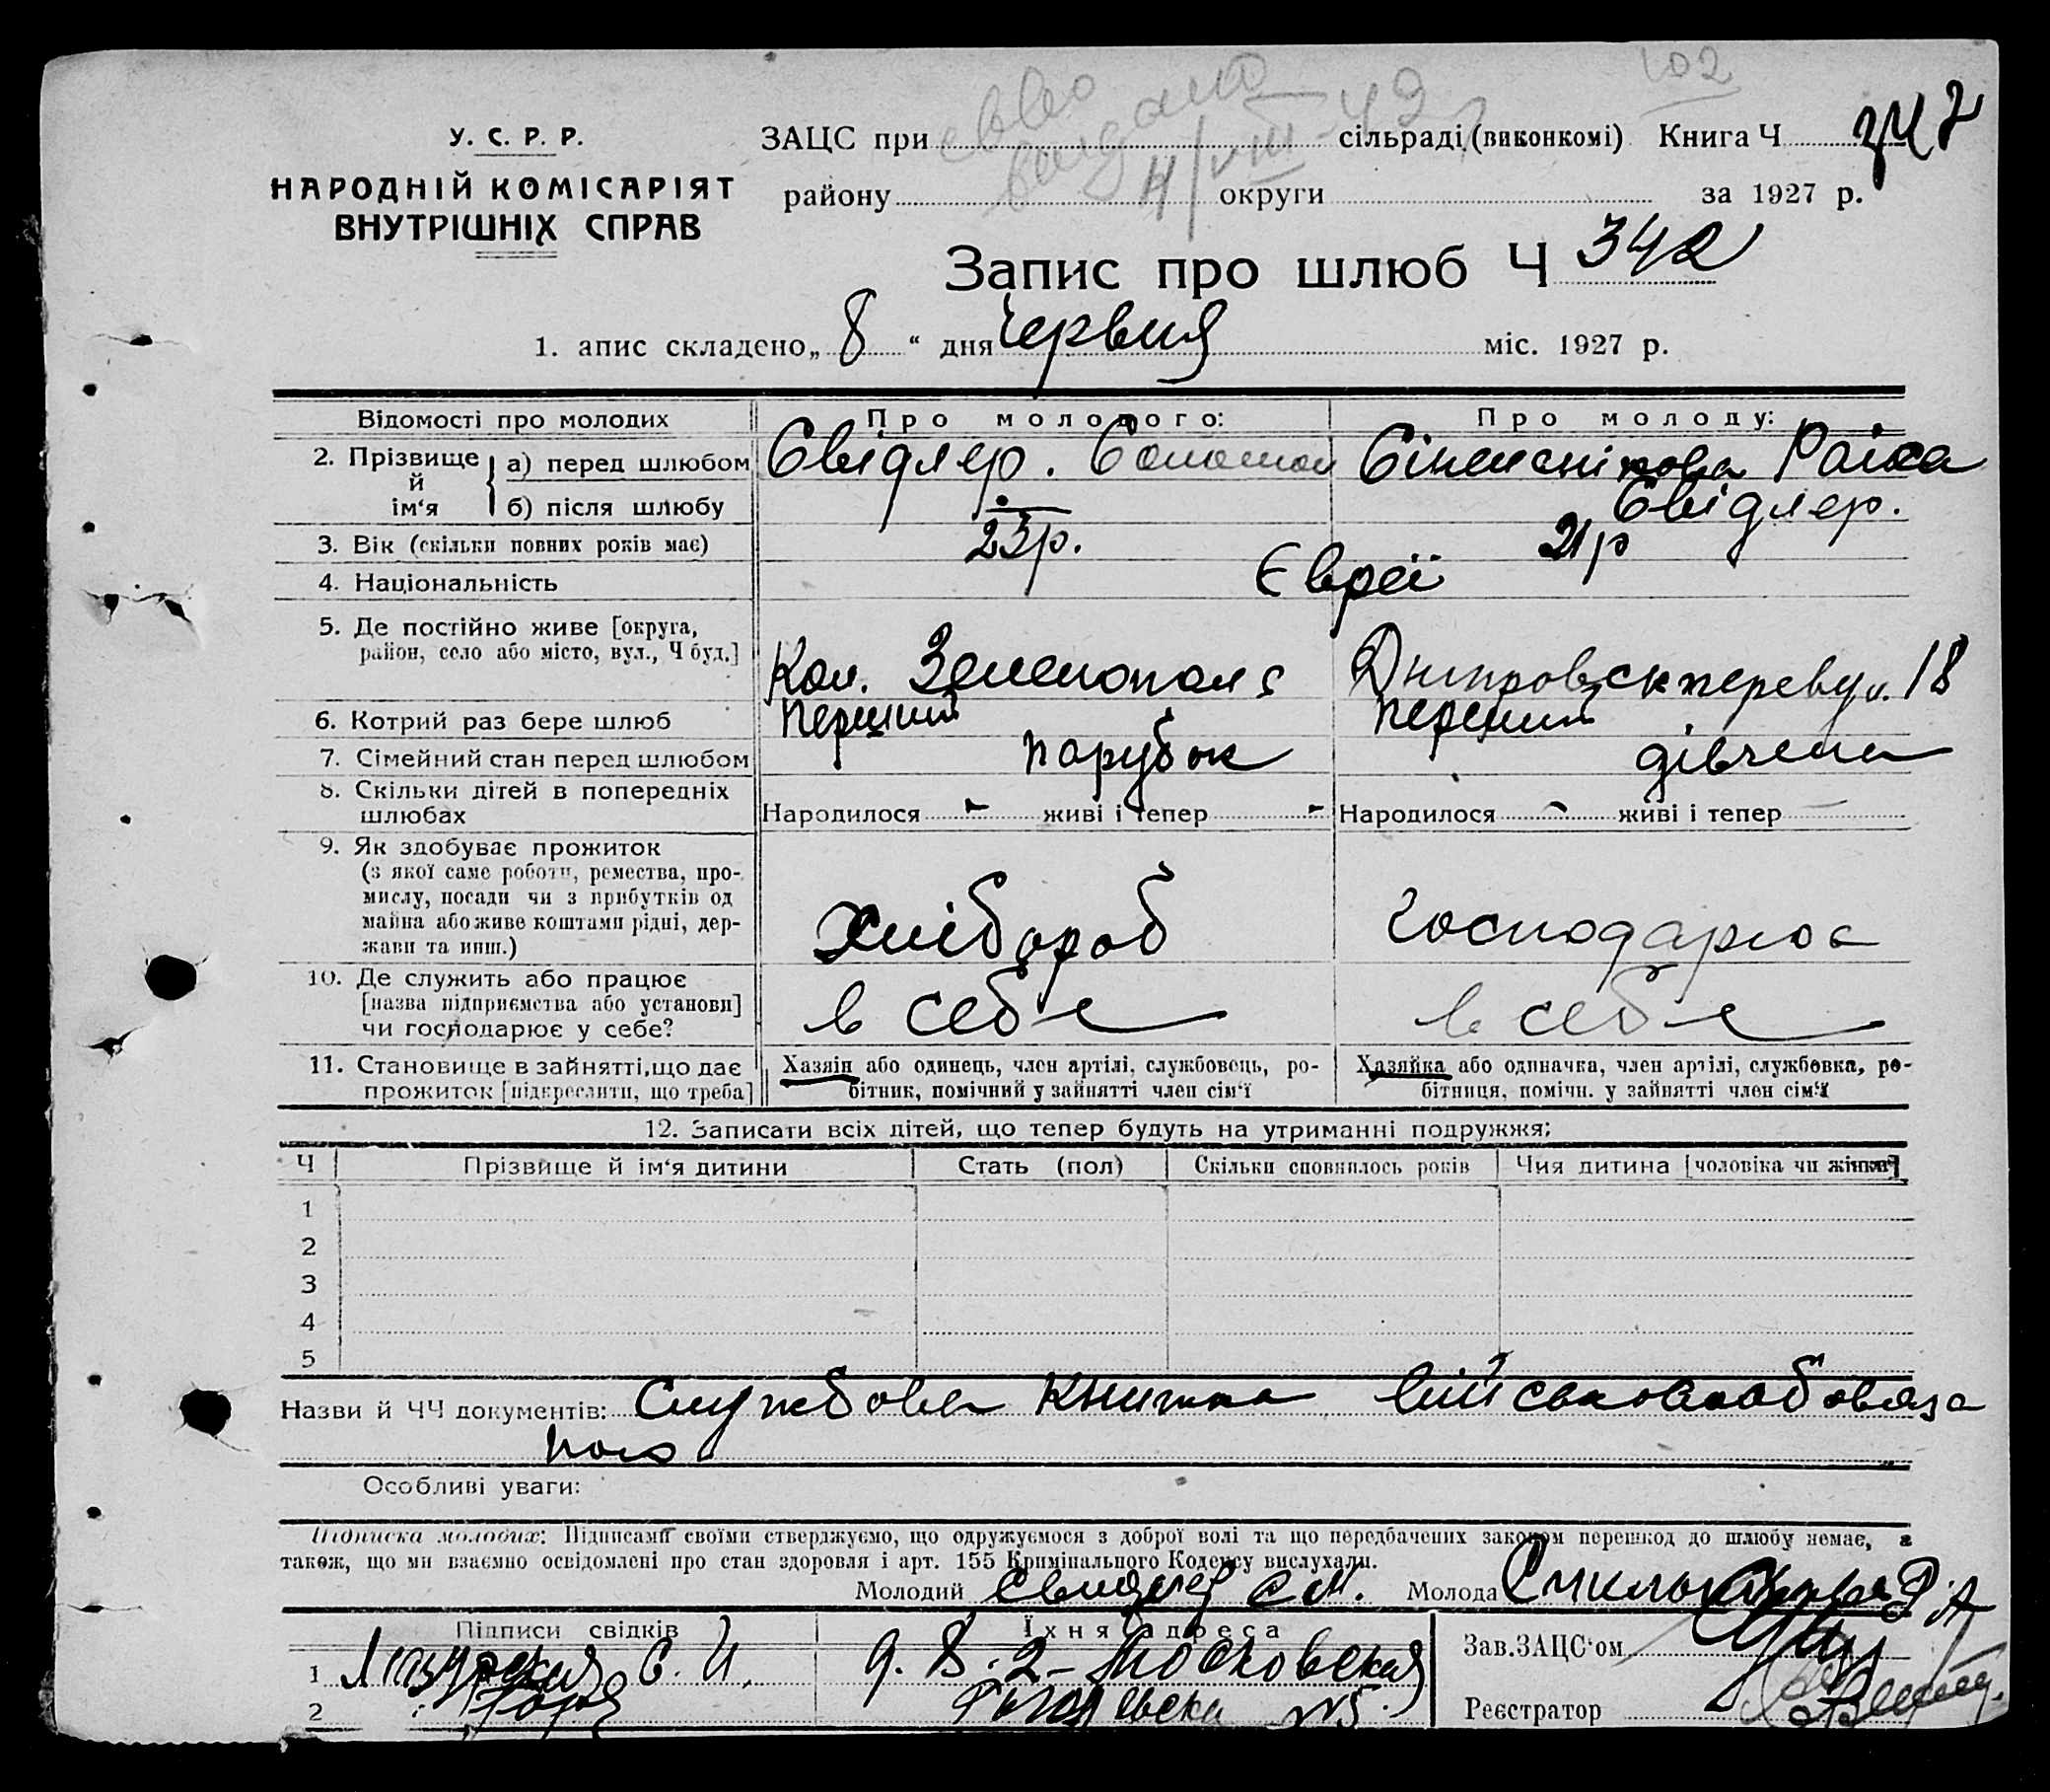 102
У. С. Р. Р.
НАРОДНІЙ КОМІСАРІЯТ
ВНУТРІШНІХ СПРАВ
ЗАЦС при сільраді (виконкомі) Книга Ч
району округи за 1927 р.
Запис про шлюб Ч 342
1. апис складено „ 8 “ дня Червня міс. 1927 р.
Відомості про молодих Про молодого: Про молоду:
2. Прізвище й ім‘я
а) перед шлюбом Свідлер. Соломон Раіса
б) після шлюбу Свідлер.
3. Вік (скільки повних років має) 23р. 21р
4. Національність Євреї
5. Де постійно живе [округа,
район, село або місто, вул., Ч буд.]
Кол. Зеленополє 18
6. Котрий раз бере шлюб Перший перший
7. Сімейний стан перед шлюбом парубок дівчина
8. Скільки дітей в попередніх
шлюбах
Народилося - живі і тепер - Народилося - живі і тепер
9. Як здобуває прожиток
(з якої саме роботи, ремества, про-
мислу, посади чи з прибутків од
майна або живе коштами рідні, дер-
жави та инш.)
Хлібороб Господарює
10. Де служить або працює
[назва підприємства або установи]
чи господарює у себе?
в себе в себе
11. Становище в зайнятті, що дає
прожиток [підкреслити, що треба]
Хазяїн або одинець, член артілі, службовець, ро-
бітник, помічний у зайнятті член сім‘ї
Хазяйка або одиначка, член артілі, службовка, ро-
бітниця, помічн. у зайнятті член сім‘ї
12. Записати всіх дітей, що тепер будуть на утриманні подружжя:
Ч Прізвище й ім‘я дитини Стать (пол) Скільки сповнилось років Чия дитина [чоловіка чи жінки]
1
2
3
4
5
Назви й ЧЧ документів: Службова Книжка військовообовяза
ного
Особливі уваги:
Підписка молодих: Підписами своїми стверджуємо, що одружуємося з доброї волі та що передбачених законом перешкод до шлюбу немає, а
також, що ми взаємно освідомлені про стан здоровля і арт. 155 Кримінального Кодексу вислухали.
Молодий Свидлер С М. Молода Р. А
Підписи свідків Їхня адреса Зав. ЗАЦС‘ом
1 С. И. Московская
2 Реєстратор